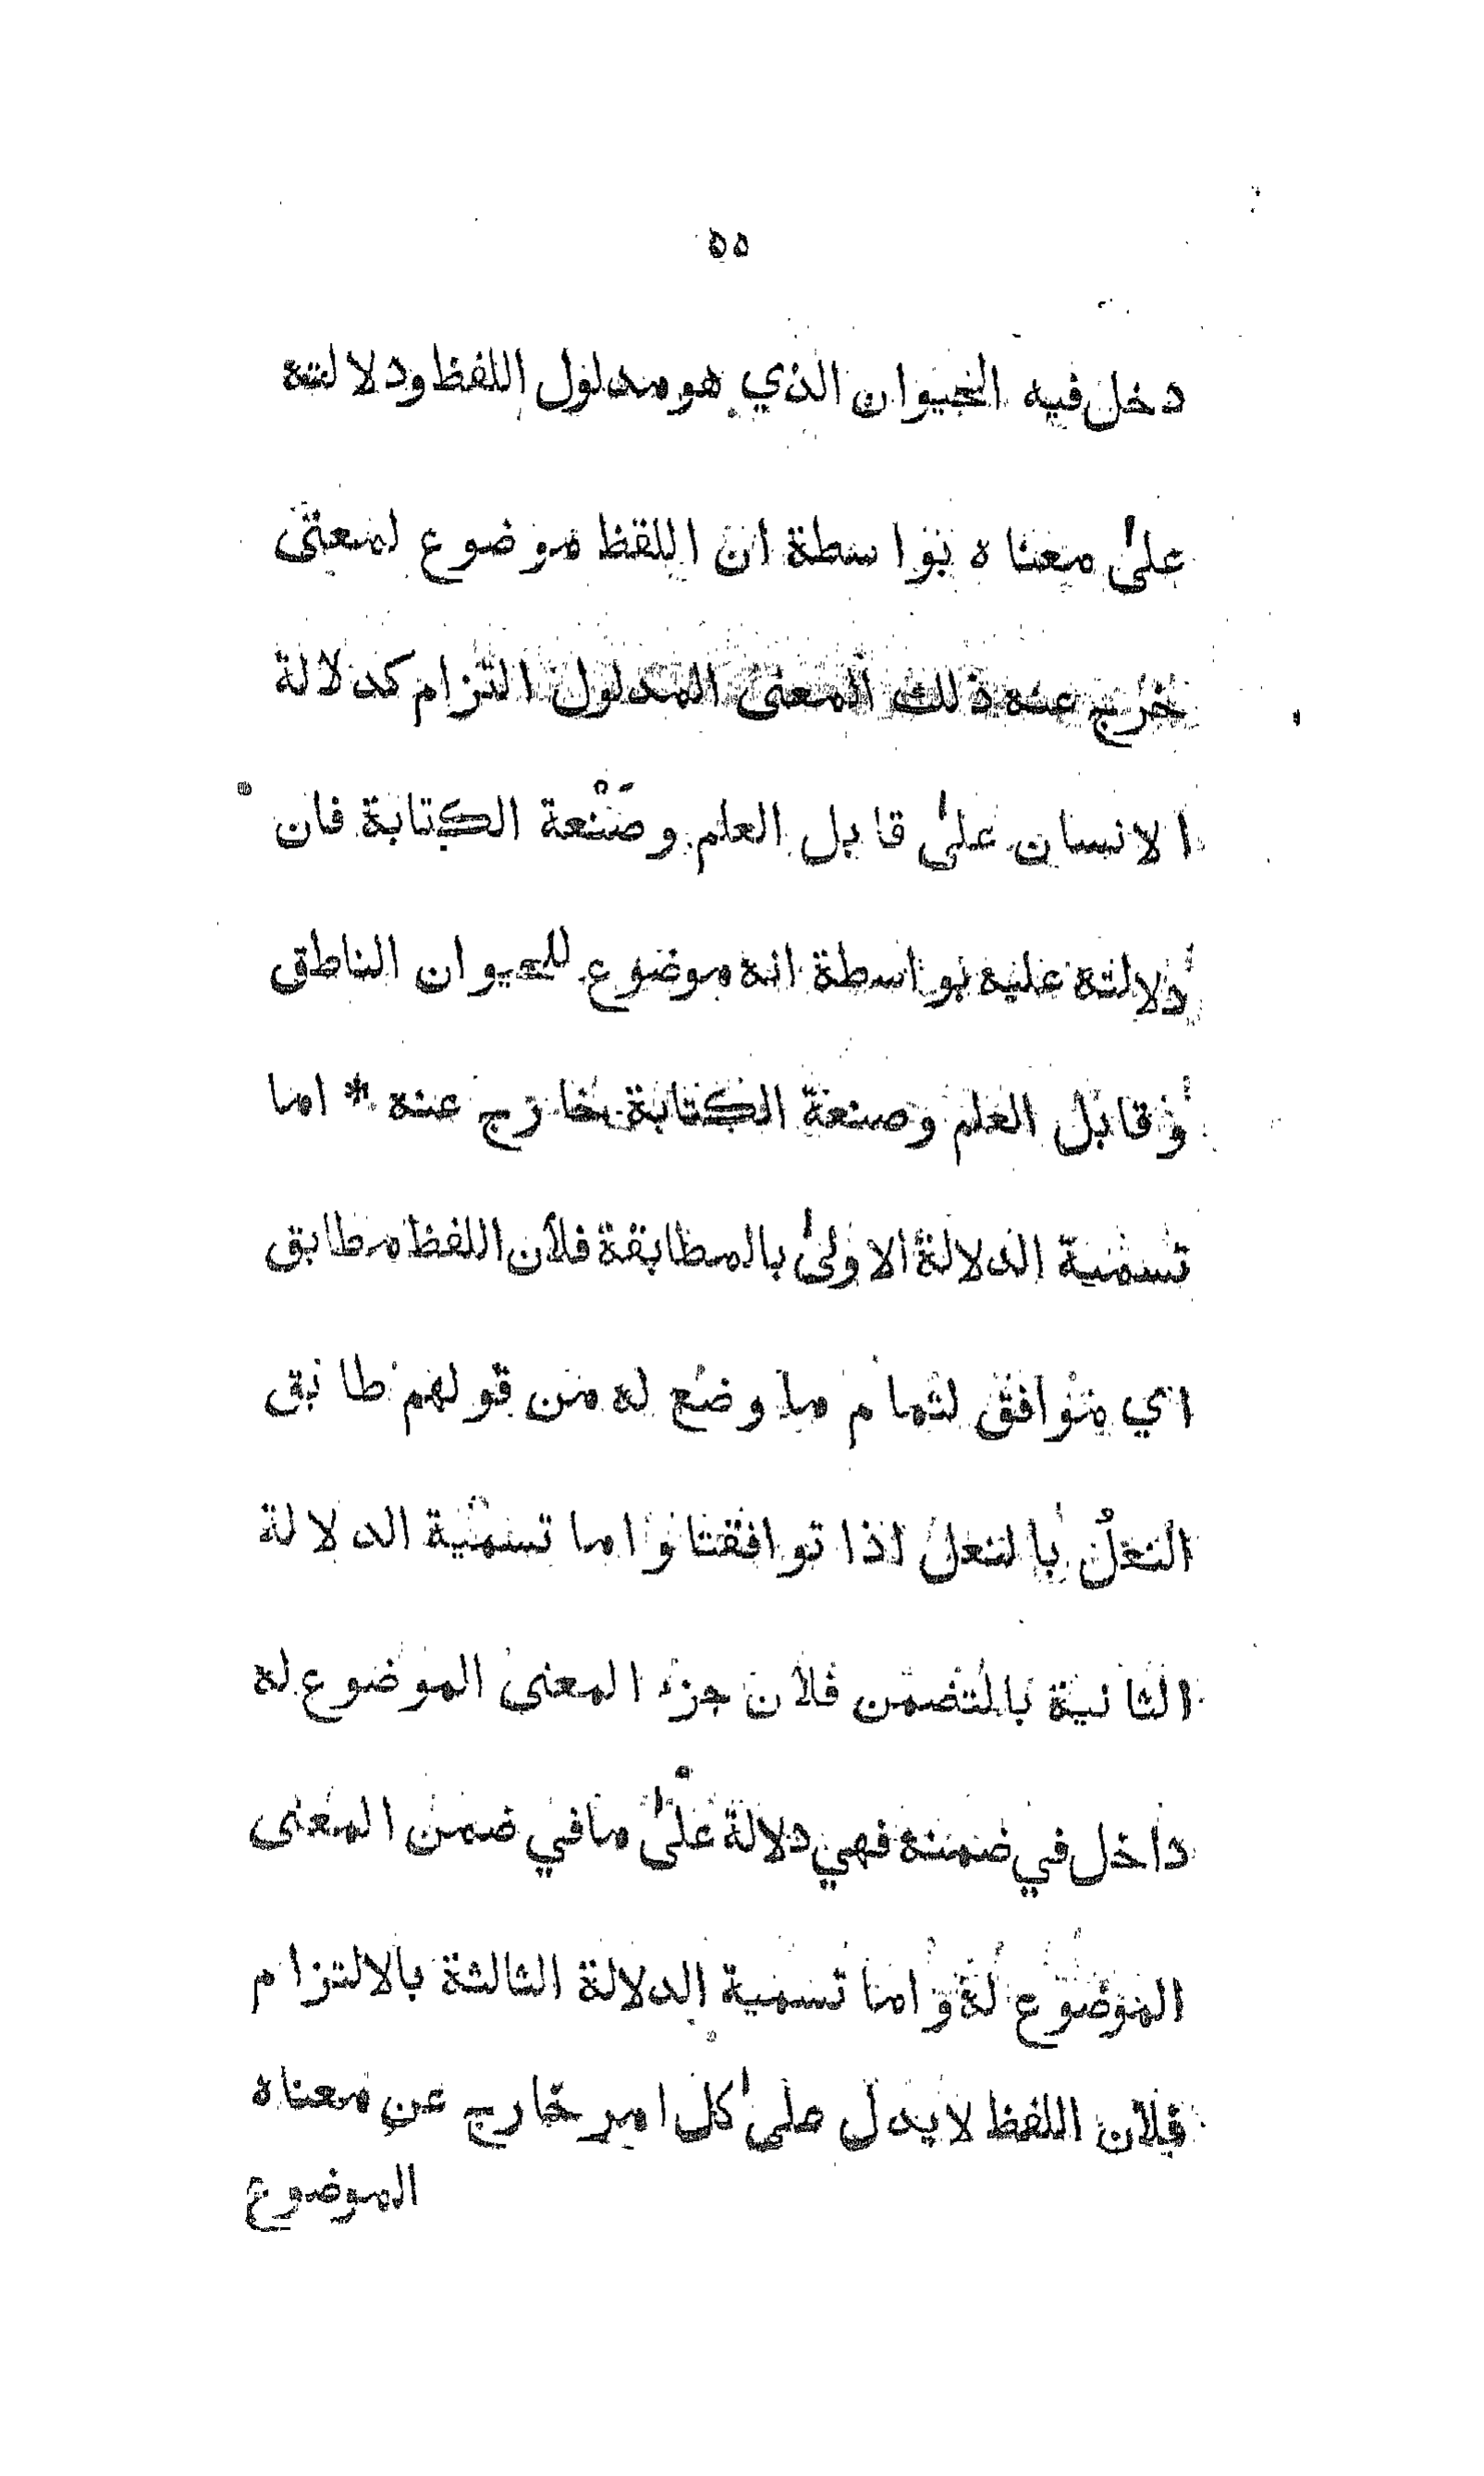 ٥٥
دخل فيه الحيوان الذي هو مدلول اللفظ ودلالته
علىٰ معناه بواسطة ان اللفظ موضوع لمعنى
خرج عنه ذلك المعنى المدلول التزام كدلالة
الانسان علىٰ قابل العلم وصَنْعة الكتابة فان
دلالته عليه بواسطة انه موضوع للحيوان الناطق
وقابل العلم وصنعة الكتابة خارج عنه * اما
تسمية الدلالة الاولىٰ بالمطابقة فلأن اللفظ مطابق
اي موافق لتمام ما وضع له من قولهم طابق
النعلُ بالنعل اذا توافقتا واما تسمية الدلالة
الثانية بالتضمن فلأن جزء المعنى الموضوع له
داخل في ضمنه فهي دلالة علىٰ ما في ضمن المعنى
الموضوع له واما تسمية الدلالة الثالثة بالالتزام
فلأن اللفظ لا يدل علىٰ كل امر خارج عن معناه
الموضوع